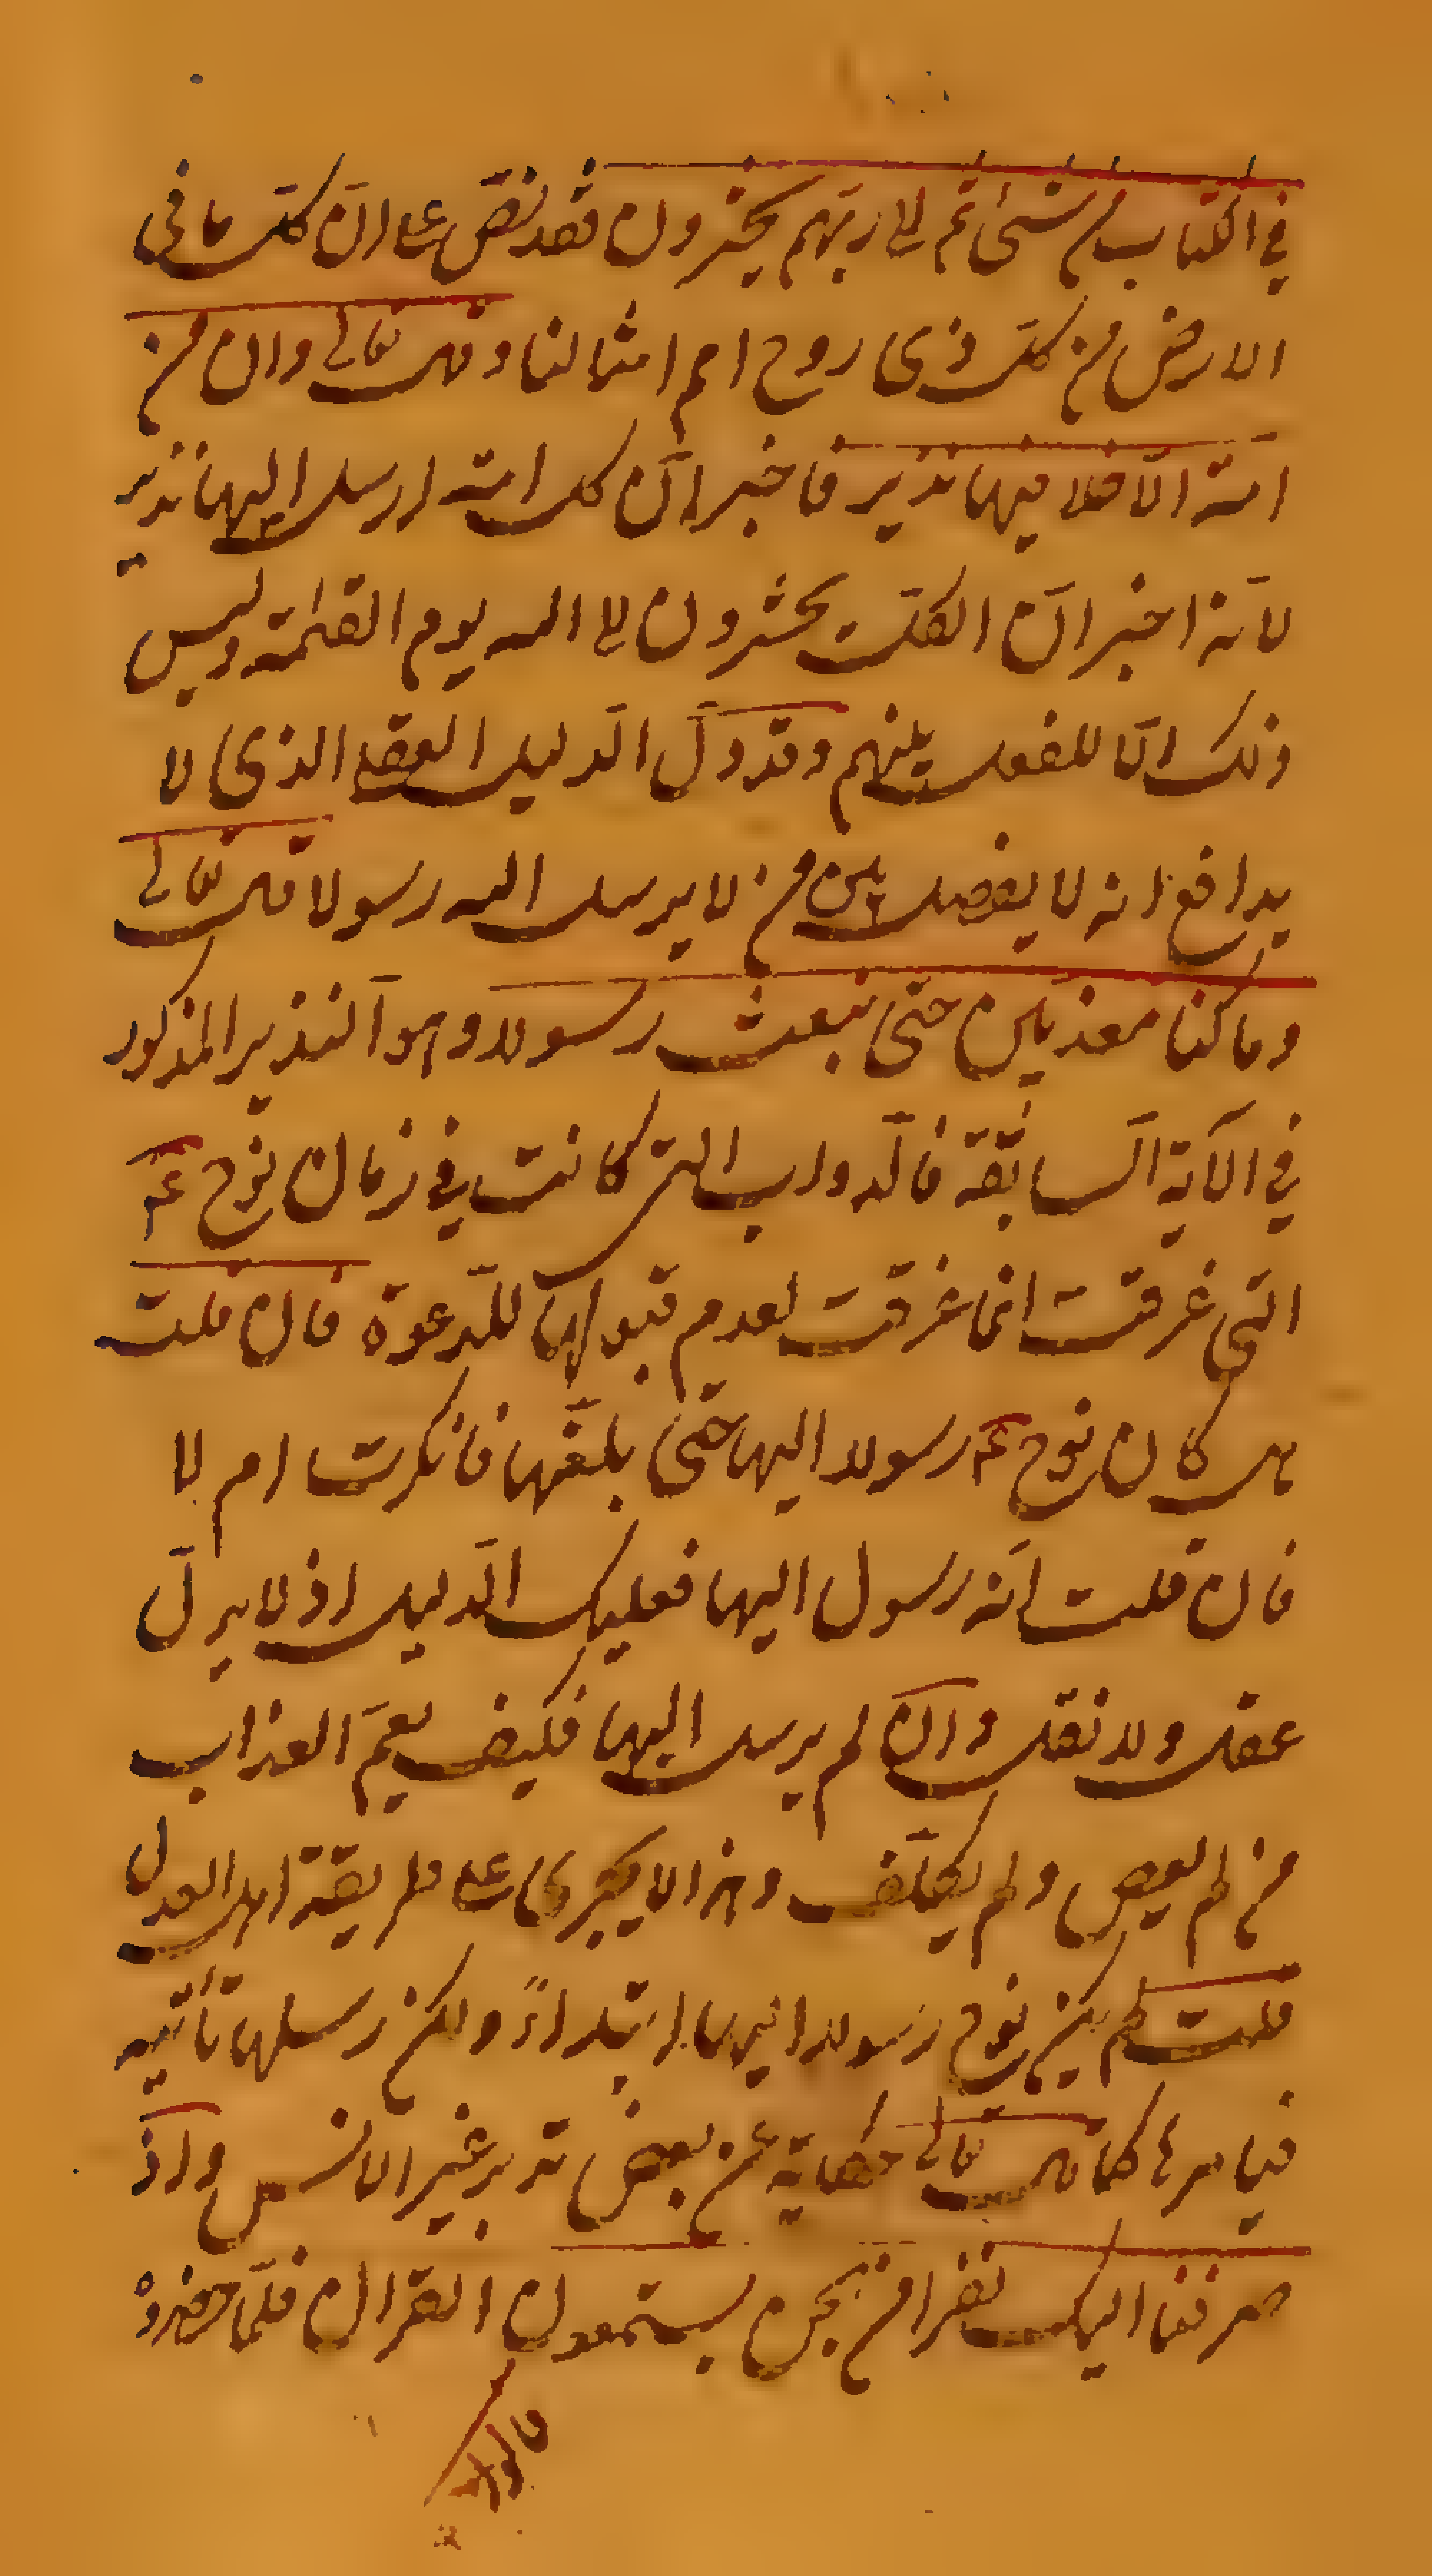 في الكتاب من شئ ثم الى ربهم يحشرون فقد نص على ان كل ما في
الارض من كل ذى روح امم امثالنا وقال تعالى وان من
امة الا خلا فيها نذير فاخبر ان كل امة ارسل اليها نذير
لانه اخبر ان الكل يحشرون الى الله يوم القيمة وليس
ذلك الا للفصل بينهم وقد دل الدليل العقلى الذى لا
يدافع انه لا يفصل بين من لا يرسل الله رسولا قال تعالى
وما كنا معذبين حتى نبعث رسولا وهو النذير المذكور
في الآية السابقة فالدواب التى كانت في زمان نوح ع
التى غرقت انما غرقت لعدم قبولها للدعوة فان قلت
هل كان نوح ع رسولا اليها حتى بلغها فانكرت ام لا
فان قلت انه رسول اليها فعليك الدليل اذ لا يدل
عقل ولا نقل وان لم يرسل اليها فكيف يعم العذاب
من لم يعص ولم يكلف وهذا لا يجرى على طريقة اهل العدل
قلت لم يكن نوح رسولا اليها ابتداءً ولكن رسلها تأتيه
فيامرها كما قال تعالى حكاية عن بعض نذير غير الانس واذ
صرفنا اليك نفرا من الجن يستمعون القران فلما حضروه
قالوا